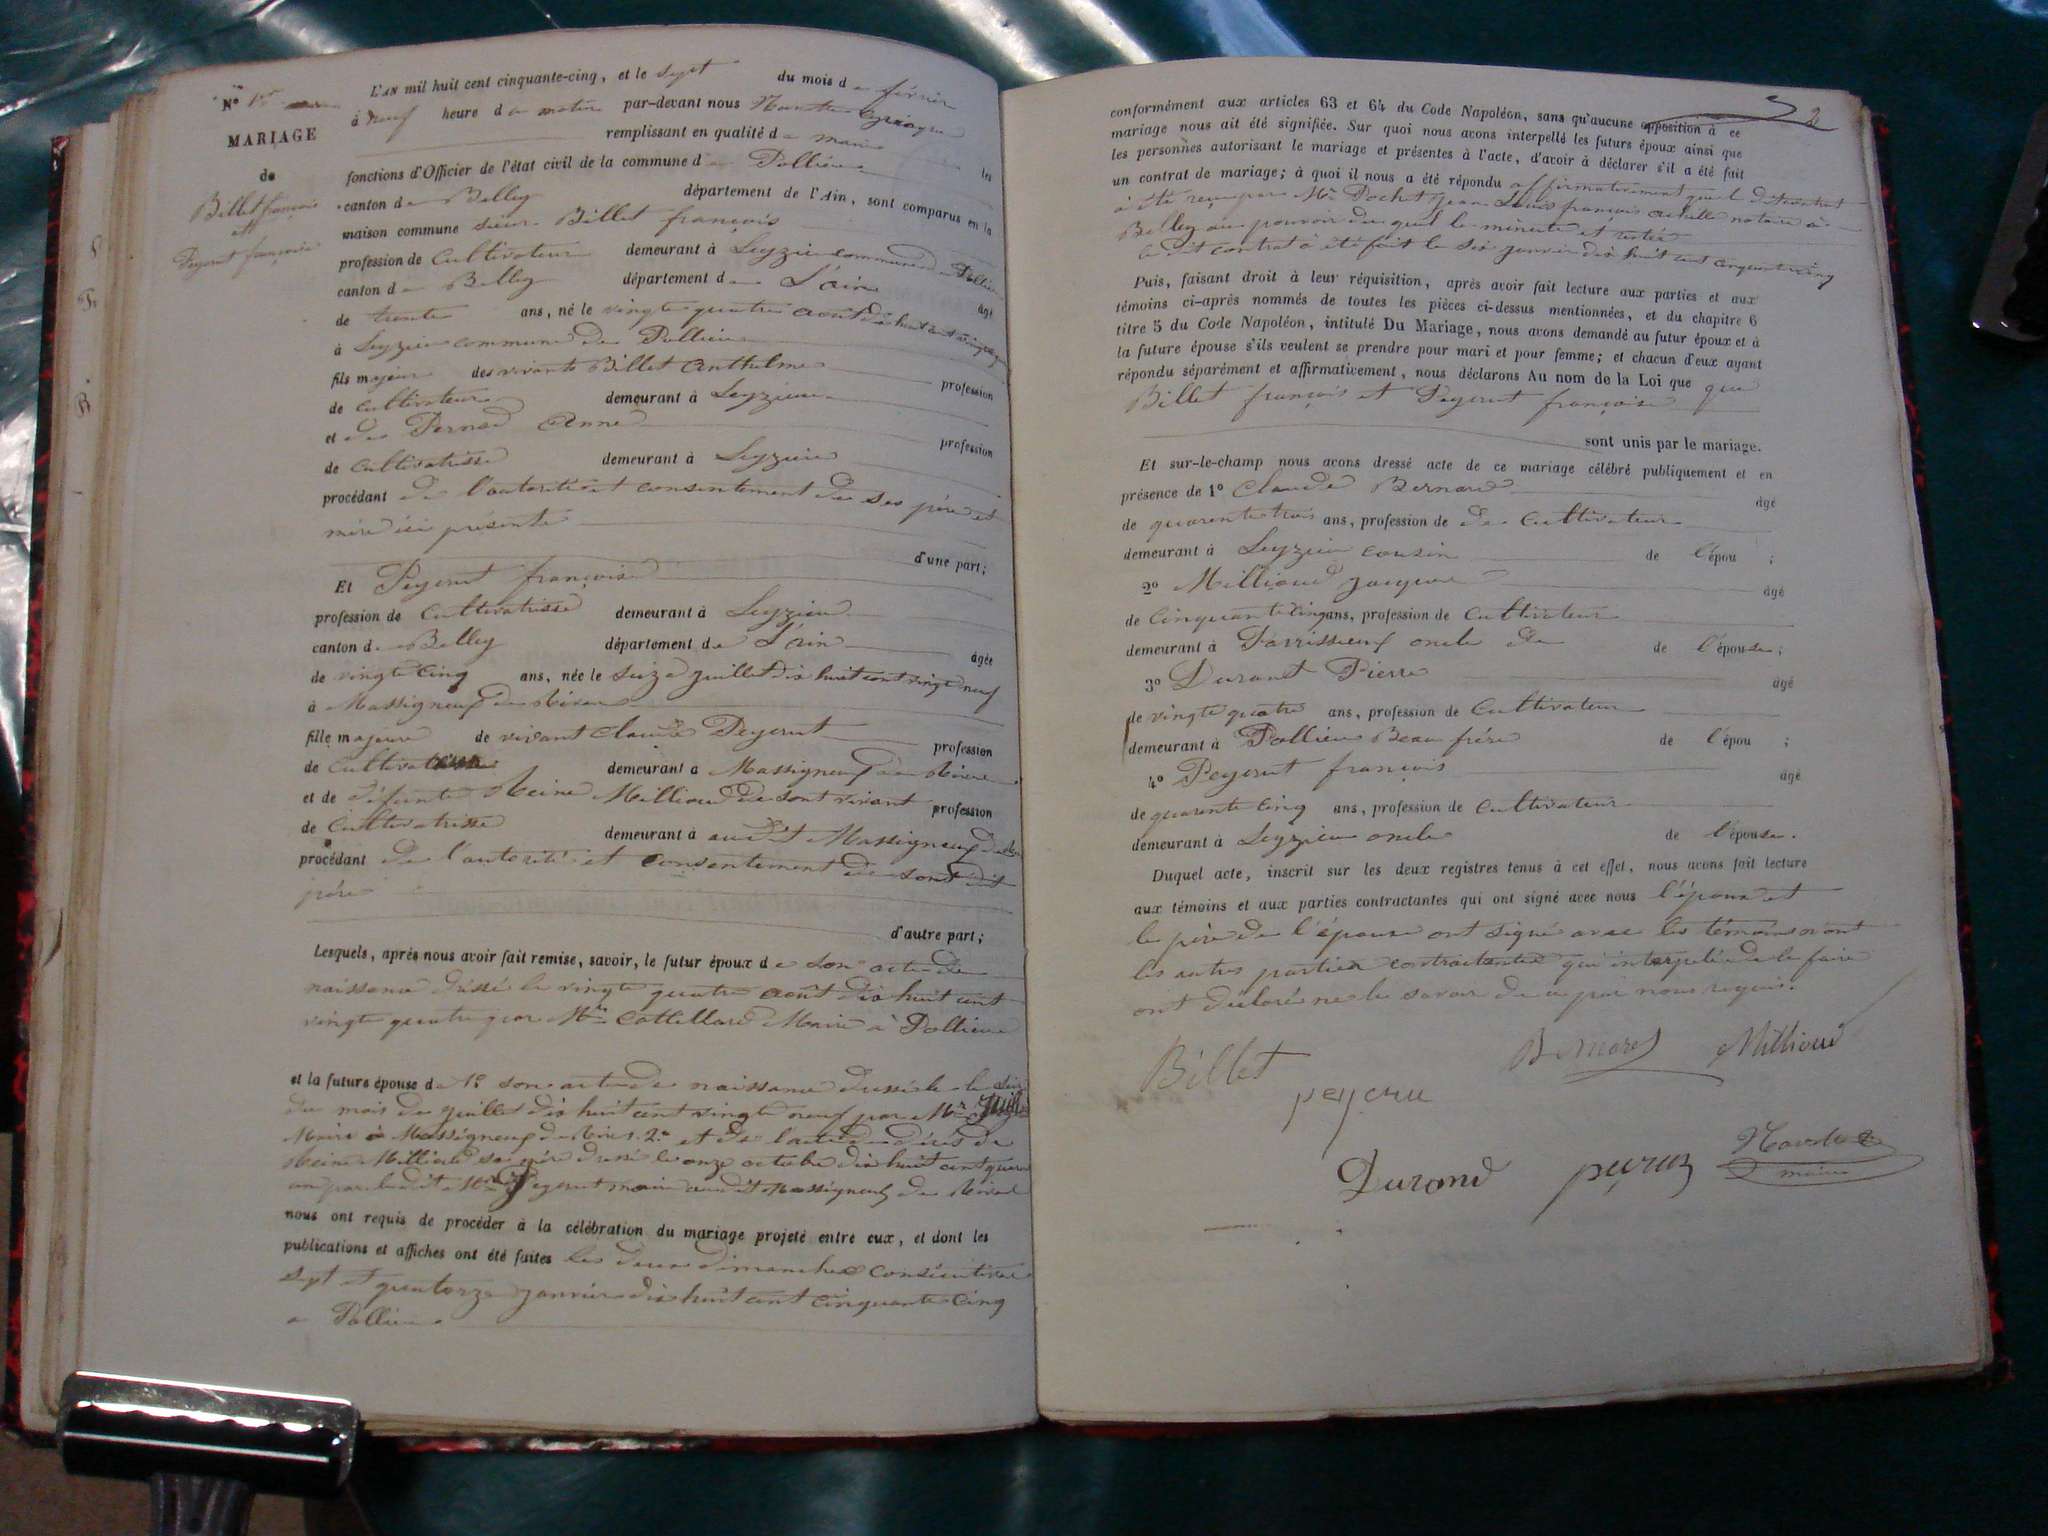 N° 1er
L'AN mil huit cent cinquante-cinq, et le sept du mois de février
à neuf heure du matin par-devant nous
remplissant en qualité de maire les
MARIAGE
de
Billet françois
et
Peyerut françoise
fonctions d'Officier de l'état civil de la commune de Pollieu
canton de Belley département de l'Ain, sont comparus en la
maison commune sieur Billet françois
profession de Cultivateur demeurant à Leyzieu commune de Pollieu
canton de Belley département de L'ain âgé
de trente ans, né le vingt quatre août dix huit cent vingt quatre
à Leyzieu commune de Pollieu
fils majeur des vivants Billet Anthelme profession
de Cultivateur demeurant à Leyzieu
et de Bernard Anne profession
de Cultivatrisse demeurant à Leyzieu
procédant de l'autorité et consentement de ses père et
mère ici présents
d'une part;
Et Peyerut françoise
profession de Cultivatrisse demeurant à Leyzieu
canton de Belley département de L'ain âgée
de vingt cinq ans, née le seize juillet dix huit cent vingt neuf
à Massigneux de Rives
fille majeure de vivant Claude Peyerut profession
de Cultivateur demeurant à Massigneux de Rives
et de défunte Reine Millioud de sont vivant profession
de Cultivatrisse demeurant à audit Massigneux de Rives
procédant de l'autorité et consentement de sont dit
père
d'autre part;
Lesquels, après nous avoir fait remise, savoir, le futur époux de son acte de
naissance dressé le vingt quatre août dix huit cent
vingt quatre par Mr Cottillard Maire à Pollieu
et la future épouse de 1° son acte de naissance dressé le seize
du mois de juillet dix huit cent vingt neuf par Mr
Maire à Massigneux de Rives 2° et de l'acte de décès de
Reine Millioud sa mère dressé le onze octobre dix huit cent
par ledit Mr Peyerut maire audit Massigneux de Rives
nous ont requis de procéder à la célébration du mariage projeté entre eux, et dont les
publications et affiches ont été faites les deux dimanches consécutives
sept et quatorze janvier dix huit cent cinquante cinq
à Pollieu
2
conformément aux articles 63 et 64 du Code Napoléon, sans qu'aucune opposition à ce
mariage nous ait été signifiée. Sur quoi nous avons interpellé les futurs époux ainsi que
les personnes autorisant le mariage et présentes à l'acte, d'avoir à déclarer s'il a été fait
un contrat de mariage; à quoi il nous a été répondu affirmativement que le dit contrat
à été reçu par Mr Pochet Jean Louis françois Achille notaire à
Belley au pouvoir du quel la minute et restée
le dit contrat à été fait le six janvier dix huit cent cinquante cinq
Puis, faisant droit à leur réquisition, après avoir fait lecture aux parties et aux
témoins ci-après nommés de toutes les pièces ci-dessus mentionnées, et du chapitre 6
titre 5 du Code Napoléon, intitulé Du Mariage, nous avons demandé au futur époux et à
la future épouse s'ils veulent se prendre pour mari et pour femme; et chacun d'eux ayant
répondu séparément et affirmativement, nous déclarons Au nom de la Loi que que
Billet françois et Peyerut françoise
sont unis par le mariage.
Et sur-le-champ nous avons dressé acte de ce mariage célébré publiquement et en
présence de 1° Claude Bernard âgé
de quarente trois ans, profession de de Cultivateur
demeurant à Leyzieu cousin de l'épou ;
2° Millioud Jacques âgé
de Cinquante Cinq ans, profession de Cultivateur
demeurant à Parrissieux oncle de de l'épouse;
3° Durant Pierre âgé
de vingt quatre ans, profession de Cultivateur
demeurant à Pollieu Beau frère de l'épou ;
4° Peyerut françois âgé
de quarente Cinq ans, profession de Cultivateur
demeurant à Leyzieu oncle de l'épouse.
Duquel acte, inscrit sur les deux registres tenus à cet effet, nous avons fait lecture
aux témoins et aux parties contractantes qui ont signé avec nous l'époux et
le père de l'épouse ont signé avec les témoins
les autres parties contractantes qui interpelé de le faire
ont déclaré ne le savoir de ce par nous requis.
Billet Bernard Millioud
peycru
Durand
maire